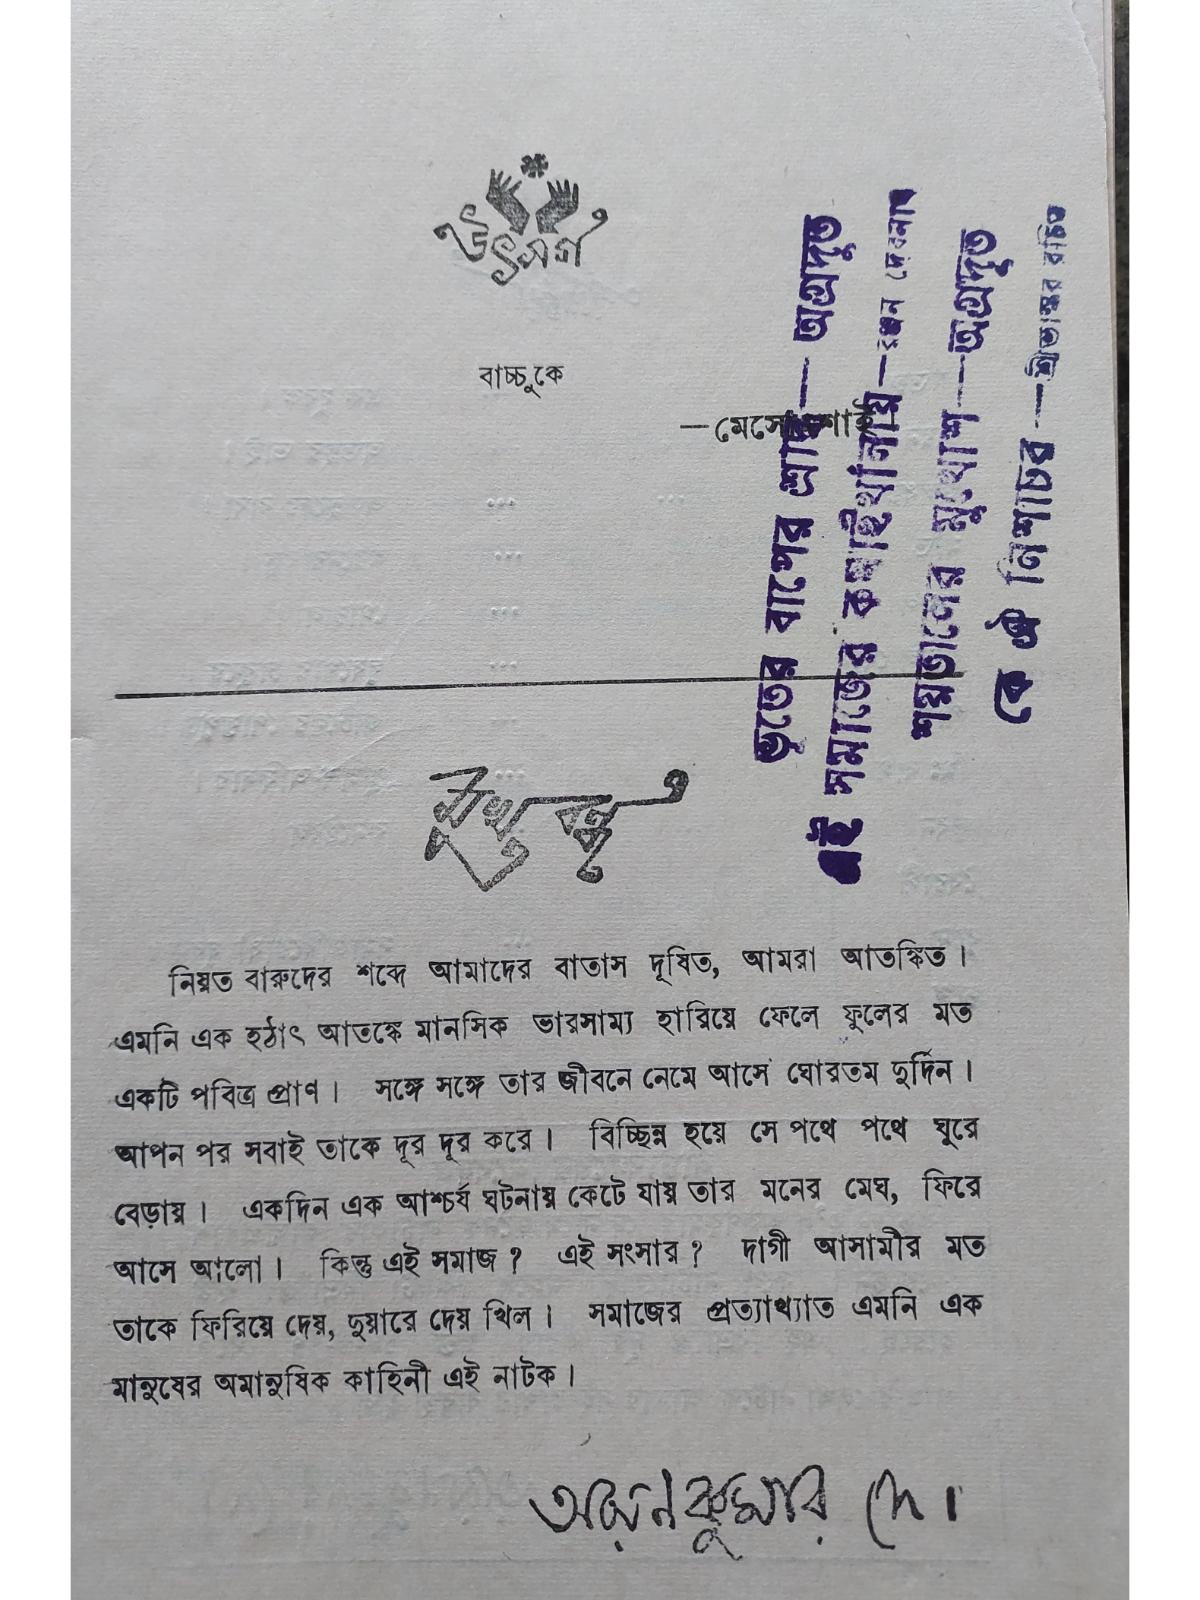 উৎসর্গ
বাচ্চুকে
—মেসোমশাই
ভূতের বাপের শ্রাদ্ধ—অগ্রদূত
এই সমাজের কসাইখানায়—রঞ্জন দেবনাথ
শয়তানের মুখোশ—অগ্রদূত
কে ঐ নিশাচর—শ্রীভাস্কর রচিত
মুখবন্ধ
নিয়ত বারুদের শব্দে আমাদের বাতাস দূষিত, আমরা আতঙ্কিত।
এমনি এক হঠাৎ আতঙ্কে মানসিক ভারসাম্য হারিয়ে ফেলে ফুলের মত
একটি পবিত্র প্রাণ। সঙ্গে সঙ্গে তার জীবনে নেমে আসে ঘোরতম দুর্দিন।
আপন পর সবাই তাকে দূর দূর করে। বিচ্ছিন্ন হয়ে সে পথে পথে ঘুরে
বেড়ায়। একদিন এক আশ্চর্য ঘটনায় কেটে যায় তার মনের মেঘ, ফিরে
আসে আলো। কিন্তু এই সমাজ? এই সংসার? দাগী আসামীর মত
তাকে ফিরিয়ে দেয়, দুয়ারে দেয় খিল। সমাজের প্রত্যাখ্যাত এমনি এক
মানুষের অমানুষিক কাহিনী এই নাটক।
কুমার দে।